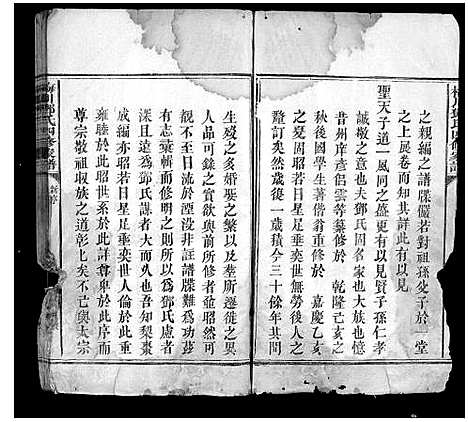 之親編之譜牒儼若對祖孫父子於一堂
之上展卷而知其詳此有以見
聖天子道一風同之盛更有以見賢子孫仁孝
誠敬之意也夫鄧氏固名家也大族也憶
昔州岸彥侶雲等纂修於 乾隆己亥
秋後國學生著僭翁重修於 嘉慶乙亥
固昭若日星足垂奕世無勞後人之
釐訂矣然歲復一歲積今三十餘年其間
生歿之多婚娶之繁以及塋廬遷徙之異
人品可錄之實欲與前所修者並昭然可
觀於今日洵于湮沒非註譜牒難為功茲
有志彙輯而修明之則所以為鄧氏慮者
深且遠為鄧氏謀者大而久也吾知梨棗
成編亦昭若日星足垂奕世人倫於此重
雍睦於此昭世系於此詳尊卑於此序而
尊宗敬祖收族之道彰也矣不已與太宗
梅川鄧氏四修宗譜